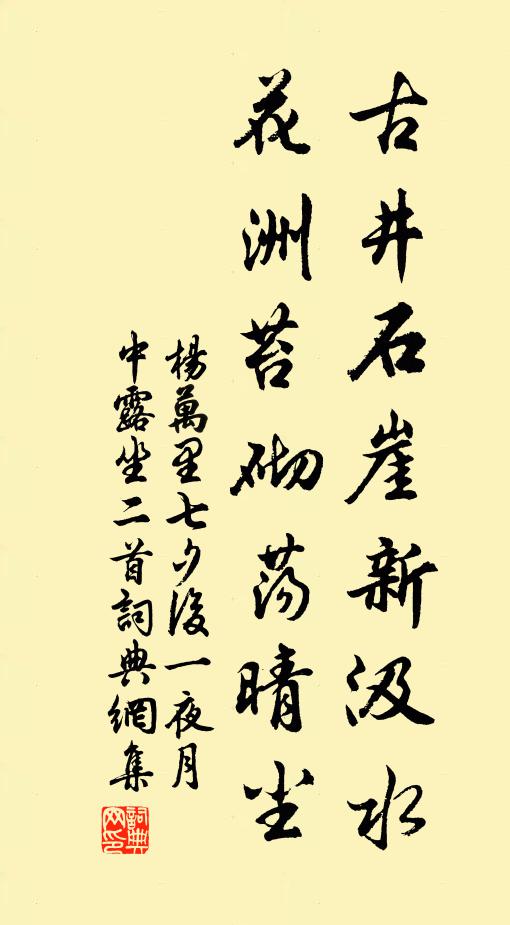 古井石崖新汲水
花洲苔砌荡晴尘
楊萬里七夕後一夜月
中露坐二首詞典網集
詞典
网印